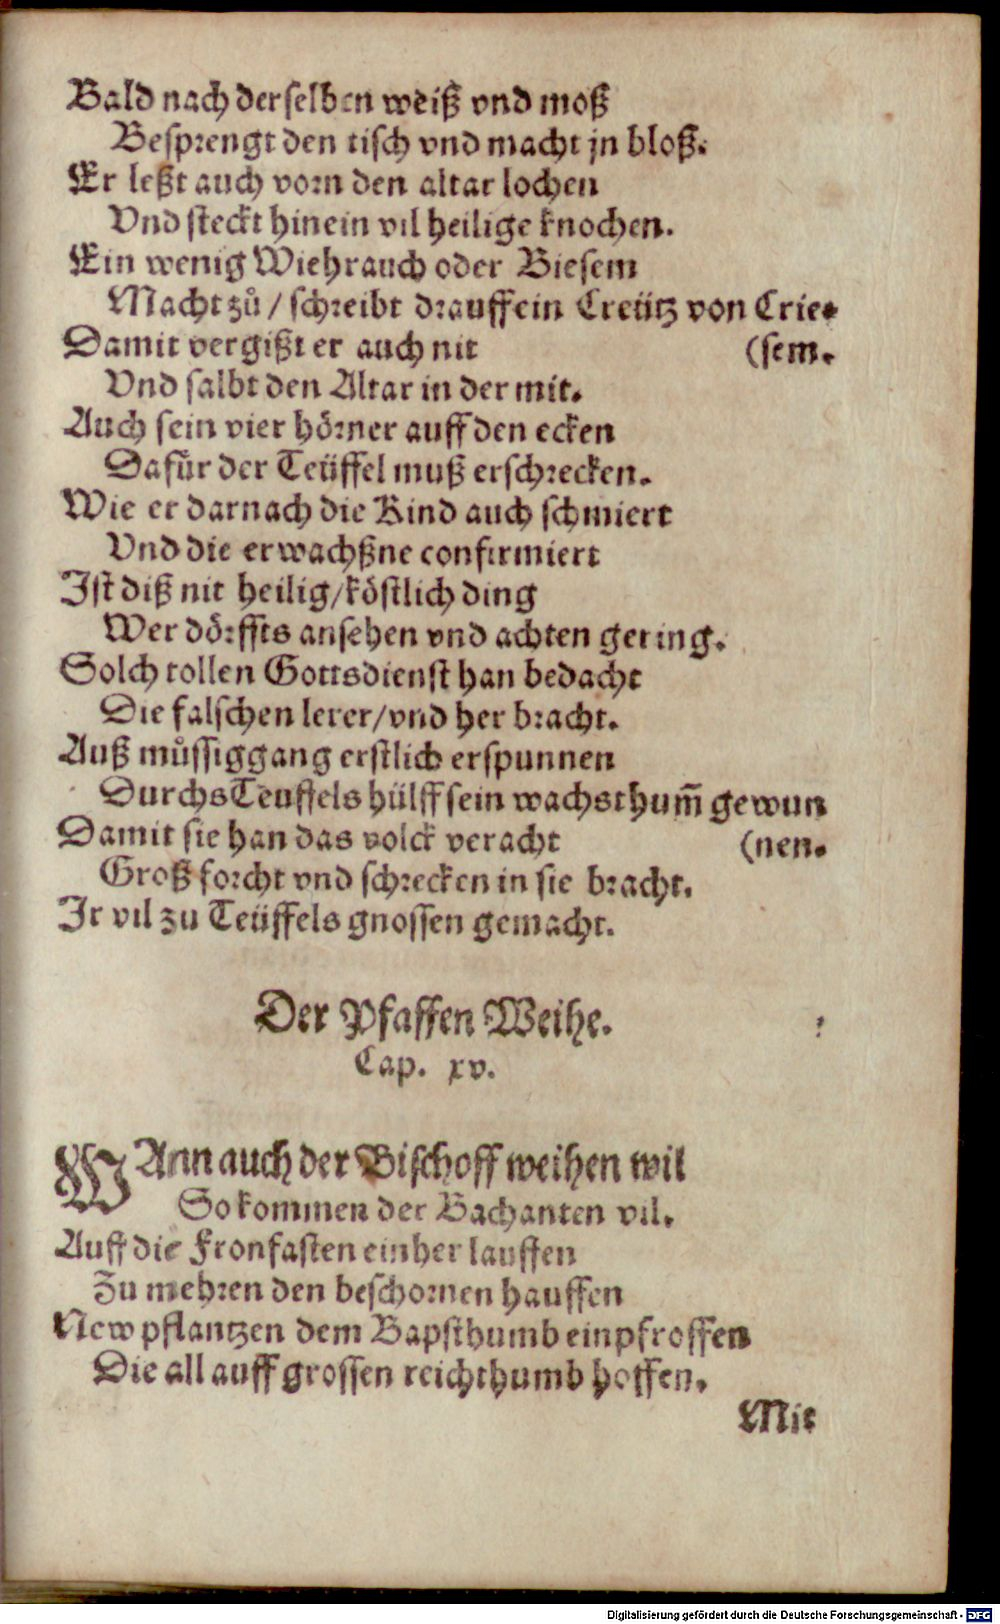 Bald nach derselben weiß vnd moß
Besprengt den tisch vnd macht jn bloß.
Er leßt auch vorn den altar lochen
Vnd steckt hinein vil heilige knochen.
Ein wenig Wiehrauch oder Biesem
Macht zů / schreibt drauff ein Creütz von Crie-
Damit vergißt er auch nit (sem.
Vnd salbt den Altar in der mit.
Auch sein vier hörner auff den ecken
Dafür der Teüffel muß erschrecken.
Wie er darnach die Kind auch schmiert
Vnd die erwachßne confirmiert
Jst diß nit heilig/köstlich ding
Wer dörffts ansehen vnd achten gering.
Solch tollen Gottsdienst han bedacht
Die falschen lerer/vnd her bracht.
Auß můssiggang erstlich erspunnen
Durchs Teuffels hülff sein wachsthum̃ gewun
Damit sie han das volck veracht (nen.
Groß forcht vnd schrecken in sie bracht.
Jr vil zu Teüffels gnossen gemacht.
Der Pfaffen Weihe.
Cap. xv.
WAnn auch der Bischoff weihen wil
So kommen der Bachanten vil.
Auff die Fronfasten einher lauffen
Zu mehren den beschornen hauffen
New pflantzen dem Bapsthumb einpfroffen
Die all auff grossen reichthumb hoffen.
Mit
Digitalisierung gefördert durch die Deutsche Forschungsgemeinschaft - DFG